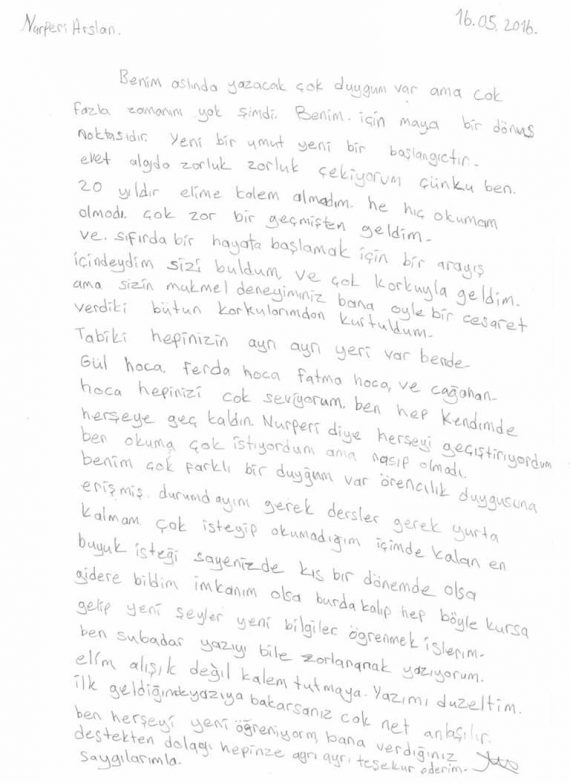 Nurperi Arslan.
16.05.2016.
Benim aslında yazacak çok duygum var ama cok
fazla zamanım yok şimdi. Benim. için maya bir dönüs
noktasıdır. Yeni bir umut yeni bir başlangıctır.
evet algıda zorluk zorluk çekiyorum çünku ben.
20 yıldır elime kalem almadım. he hiç okumam
olmadı. çok zor bir geçmişten geldim.
ve. sıfırda bir hayata başlamak için bir arayış
içindeydim sizi buldum, ve çok korkuyla geldim.
ama sizin mukmel deneyiminiz bana oyle bir cesaret
verdiki bütun korkularımdan kurtuldum.
Tabiki hepinizin ayrı ayrı yeri var bende
Gül hoca, Ferda hoca fatma hoca, ve çağahan
hoca hepinizi cok seviyorum. ben hep Kendimde
herşeye geç kaldın Nurperi diye herşeyi geçiştiriyordum
ben okuma çok istiyordum ama nasip olmadı.
benim çok farklı bir duyğum var örencilik duygusuna
erişmiş. durumdayım gerek dersler gerek yurta
kalmam çok isteyip okumadığım içimde kalan en
buyuk isteği sayenizde kıs bir dönemde olsa
gidere bildim imkanım olsa burda kalıp hep böyle kursa
gelip yeni şeyler yeni bilgiler öğrenmek isterim.
ben subadar yazıyı bile zorlanarak yazıyorum.
elim alışık değil kalem tutmaya. Yazımı duzeltim.
ilk geldiğimdeyazıya bakarsanız cok net anlaşılır.
ben herşeyi yeni öğreniyorm bana verdiğiniz
destekten dolayı hepinze ayrı ayrı teşekur ederim.
saygılarımla.